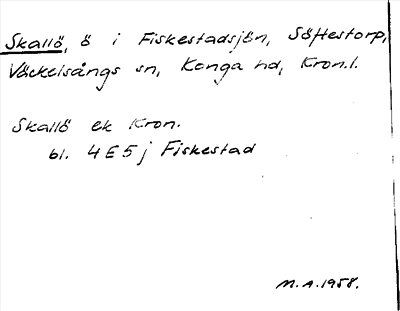 Skallö, ö i Fiskestadsjön, Söftestorp,
Väckelsångs sn, Konga hd, Kron.l.
Skallö ek Kron.
bl. 4E5j Fiskestad
M.A.1958.